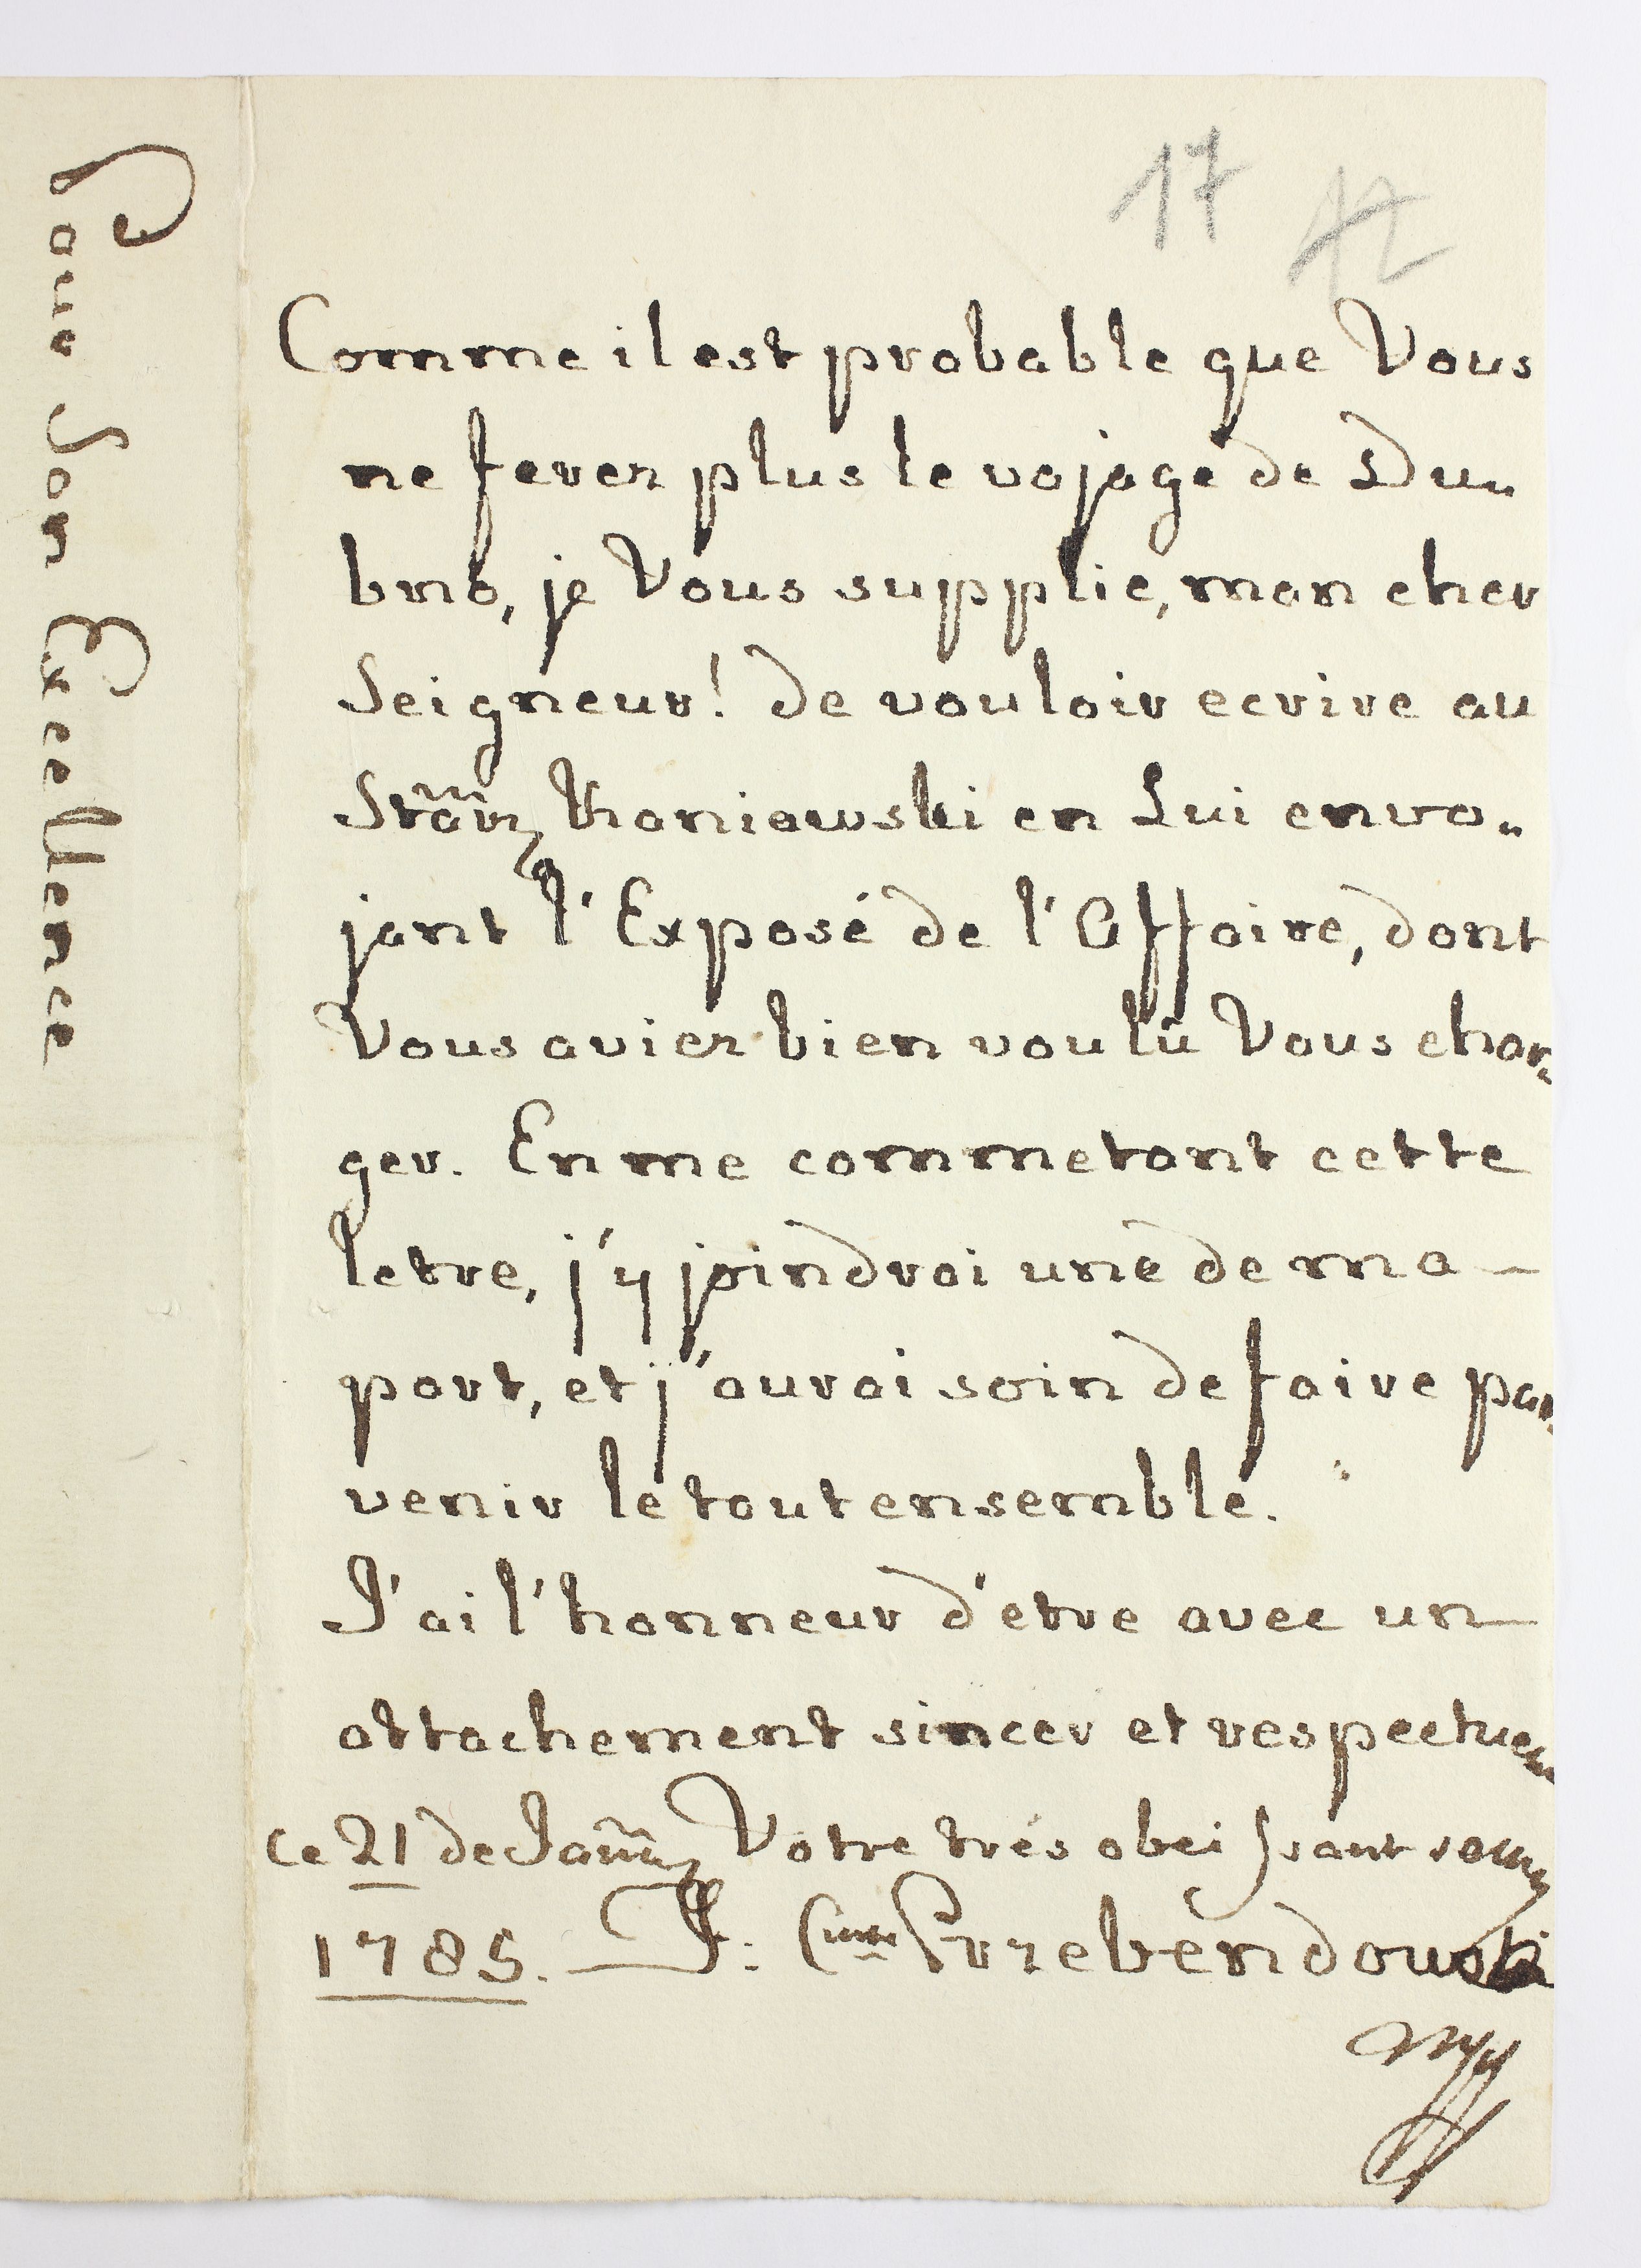 17 17
Comme il est probable que Vous
ne ferez plus le vojage de Du„
bno, je Vous supplie, mon cher
Seigneur! de vouloir ecrire au
Kaniowski en Lui envo„
jant l'Exposé de l'Affaire, dont
Vous aviez bien voulû Vous char„
ger. En me commetant cette
letre, j'y joindrai une de ma —
part, et j'aurai soin de faire par„
venir le tout ensemble.
J'ai l'honneur d'etre avec un —
attachement sincer et respectueu
Votre trés obeissant
ce 21 de
1785. Przebendowski
Pour Son Excellence